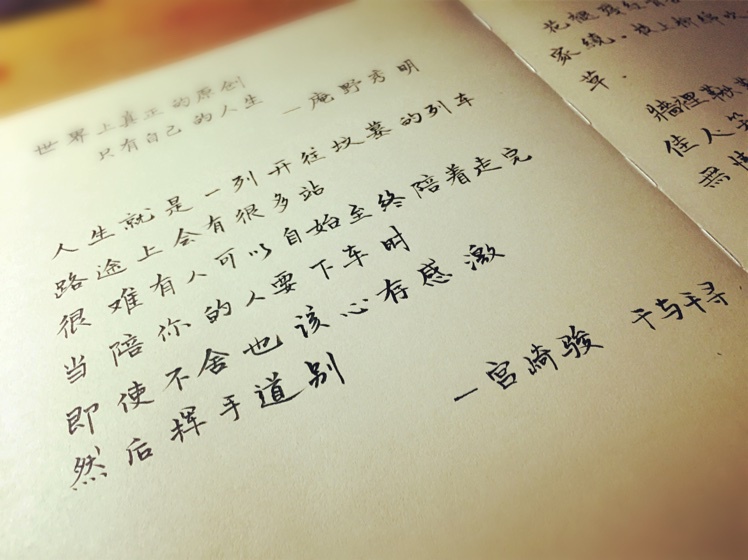 世界上真正的原创
只有自己的人生 —庵野秀明
人生就是一列开往坟墓的列车
路途上会有很多站
很难有人可以自始至终陪着走完
当陪你的人要下车时
即使不舍也该心存感激
然后挥手道别
—宫崎骏 千与千寻
花褪残红青
家绕。枝上柳绵吹
草.
牆裡鞦
佳人笑
無情